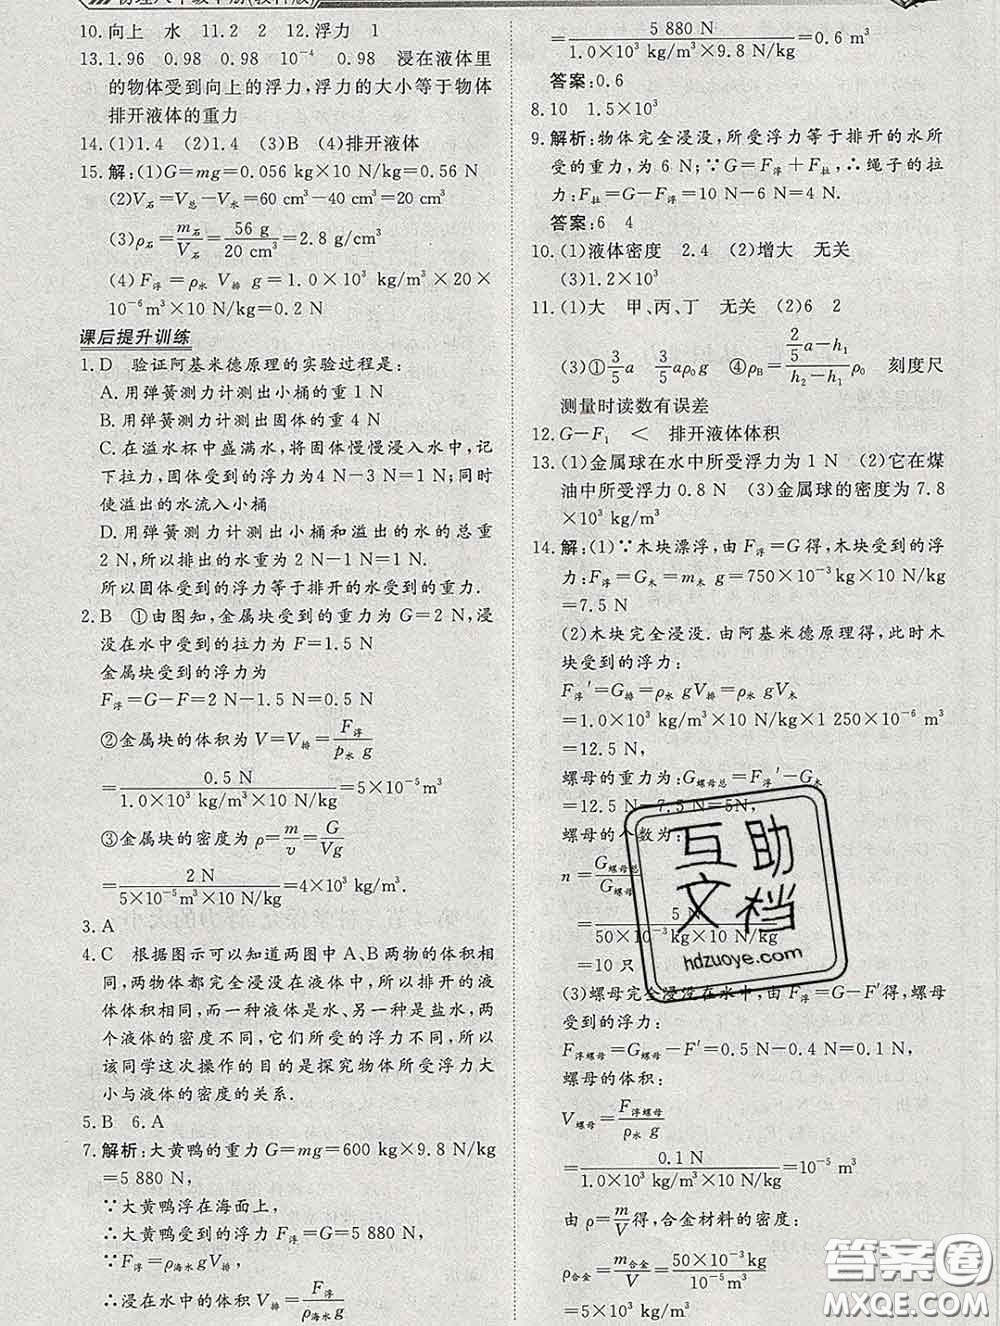 物理八年级下册(教科版)
10.向上 水 11.2 2 12.浮力 1
13.1.96 0.98 0.98 10⁻⁴ 0.98 浸在液体里
的物体受到向上的浮力,浮力的大小等于物体
排开液体的重力
14.(1)1.4 (2)1.4 (3)B (4)排开液体
15.解:(1)G=mg=0.056 kg×10 N/kg=0.56 N
(2)V石=V总-V水=60 cm³-40 cm³=20 cm³
(3)ρ石=m石/V石=56 g/20 cm³=2.8 g/cm³
(4)F浮=ρ水 V排 g=1.0×10³ kg/m³×20×
10⁻⁶m³×10 N/kg=0.2 N
课后提升训练
1.D 验证阿基米德原理的实验过程是:
A.用弹簧测力计测出小桶的重1 N
B.用弹簧测力计测出固体的重4 N
C.在溢水杯中盛满水,将固体慢慢浸入水中,记
下拉力,固体受到的浮力为4 N-3 N=1 N;同时
使溢出的水流入小桶
D.用弹簧测力计测出小桶和溢出的水的总重
2 N,所以排出的水重为2 N-1 N=1 N.
所以固体受到的浮力等于排开的水受到的重力.
2.B ①由图知,金属块受到的重力为G=2 N,浸
没在水中受到的拉力为F=1.5 N
金属块受到的浮力为
F浮=G-F=2 N-1.5 N=0.5 N
②金属块的体积为V=V排=F浮/p水 g
=0.5 N/(1.0×10³ kg/m³×10 N/kg)=5×10⁻⁵m³
③金属块的密度为ρ=m/v=G/Vg
=2 N/(5×10⁻⁵m³×10 N/kg)=4×10³ kg/m³.
3.A
4.C 根据图示可以知道两图中A、B两物的体积相
同,两物体都完全浸没在液体中,所以排开的液
体体积相同,而一种液体是水、另一种是盐水,两
个液体的密度不同,它们所受的浮力不同,所以
该同学这次操作的目的是探究物体所受浮力大
小与液体的密度的关系.
5.B 6.A
7.解析:大黄鸭的重力G=mg=600 kg×9.8 N/kg
=5 880 N,
∵大黄鸭浮在海面上,
∴大黄鸭受到的浮力F浮=G=5 880 N,
∵F浮=ρ海水gV排,
∴浸在水中的体积V排=F浮/ρ海水g
=5 880 N/(1.0×10³ kg/m³×9.8 N/kg)=0.6 m³
答案:0.6
8.10 1.5×10³
9.解析:物体完全浸没,所受浮力等于排开的水所
受的重力,为6 N;∵G=F浮+F拉,∴绳子的拉
力:F拉=G-F浮=10 N-6 N=4 N.
答案:6 4
10.(1)液体密度 2.4 (2)增大 无关
(3)1.2×10³
11.(1)大 甲、丙、丁 无关 (2)6 2
(3)①3/5a 3/5aρ₀g ④ρB=(2/5a-h₁)/(h₂-h₁)ρ₀ 刻度尺
测量时读数有误差
12.G-F₁ < 排开液体体积
13.(1)金属球在水中所受浮力为1 N (2)它在煤
油中所受浮力0.8 N (3)金属球的密度为7.8
×10³ kg/m³
14.解:(1)∵木块漂浮,由F浮=G得,木块受到的浮
力:F浮=G木=m木 g=750×10⁻³kg×10 N/kg
=7.5 N
(2)木块完全浸没.由阿基米德原理得,此时木
块受到的浮力:
F浮′=G排=ρ水 gV排=ρ水 gV木
=1.0×10³ kg/m³×10 N/kg×1 250×10⁻⁶ m³
=12.5 N,
螺母的重力为:G螺母总=F浮′-G木
=12.5 N-7.5 N=5N,
螺母的个数为:
n=G螺母总/G螺母
=5 N/(50×10⁻³kg×10 N/kg)
=10 只
(3)螺母完全浸没在水中,由F浮=G-F′得,螺母
受到的浮力:
F浮螺母=G螺母-F′=0.5 N-0.4 N=0.1 N,
螺母的体积:
V螺母=F浮螺母/ρ水 g
=0.1 N/(1.0×10³ kg/m³×10 N/kg)=10⁻⁵ m³
由ρ=m/V得,合金材料的密度:
ρ合金=m合金/V=50×10⁻³kg/10⁻⁵m³
=5×10³ kg/m³
互助
文档
hdzuoye.com
答案圈
MXQE.COM